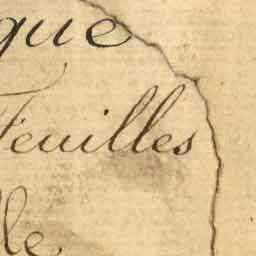 que
Feuilles
lle